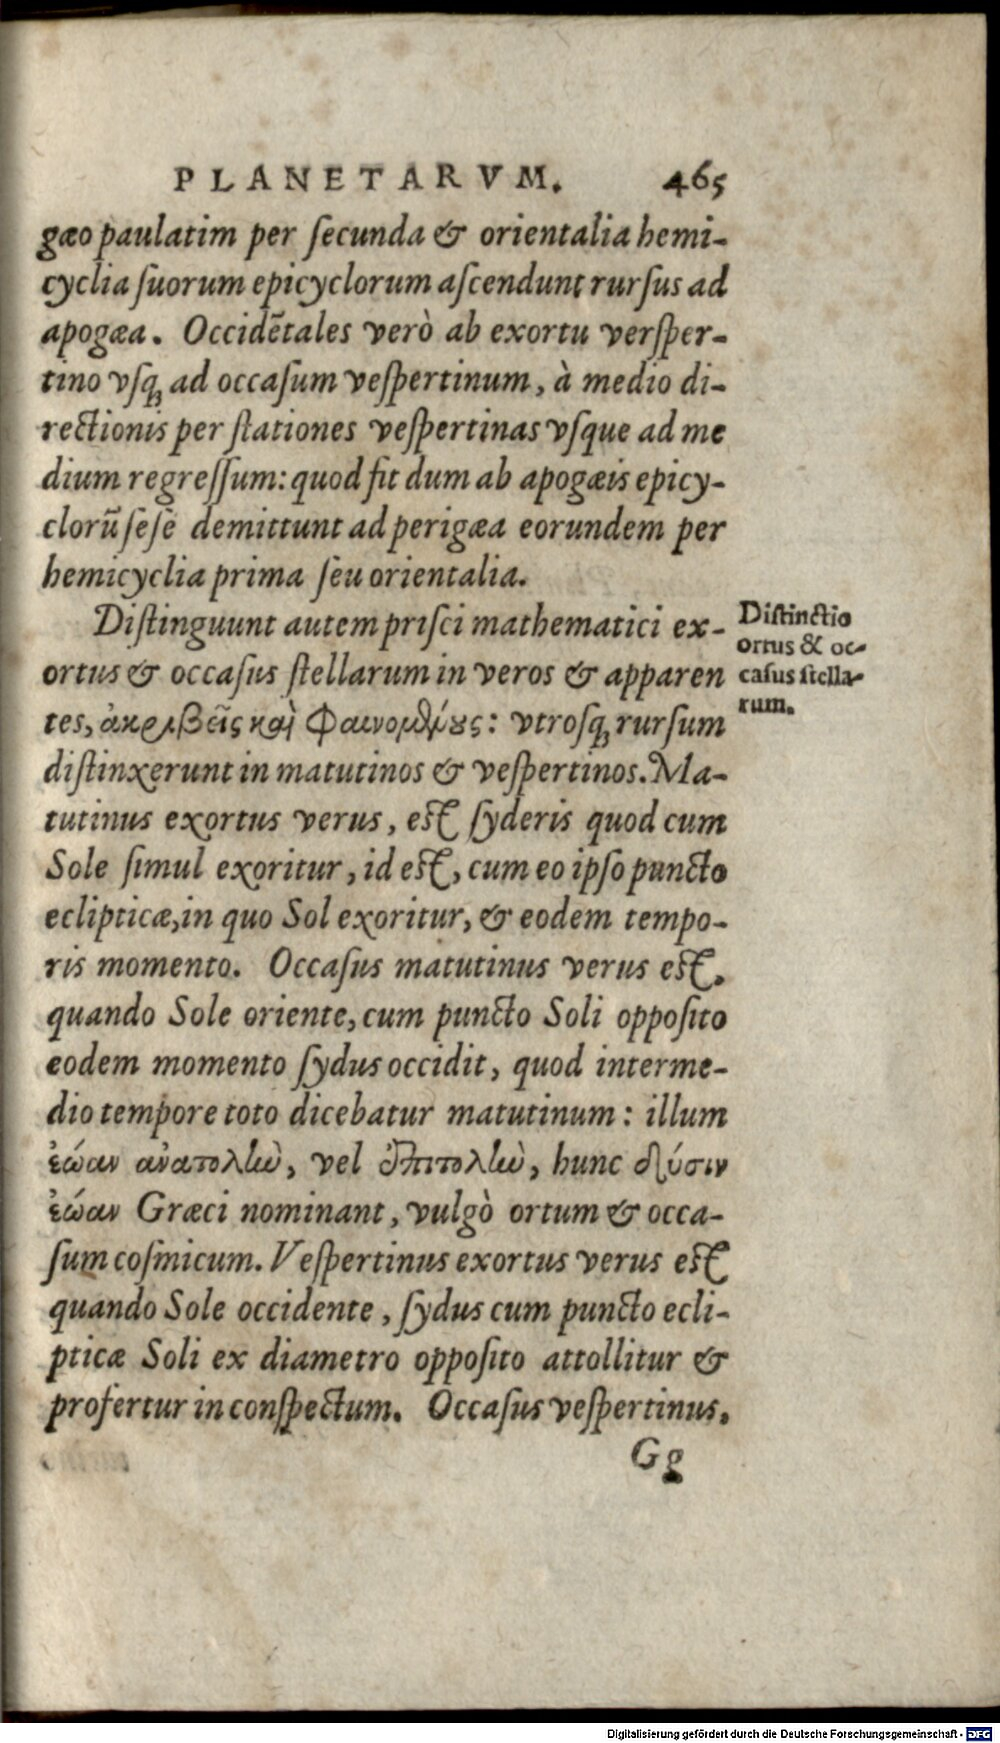 PLANETARVM. 465
gæo paulatim per ſecunda & orientalia hemi-
cyclia ſuorum epicyclorum aſcendunt rurſus ad
apogæa. Occidẽtales verò ab exortu verſper-
tino vſqꝫ ad occaſum veſpertinum, à medio di-
rectionis per ſtationes veſpertinas vſque ad me
dium regreſſum: quod fit dum ab apogæis epicy-
clorũ ſeſe demittunt ad perigæa eorundem per
hemicyclia prima ſeu orientalia.
Diſtinguunt autem priſci mathematici ex-
ortus & occaſus ſtellarum in veros & apparen
tes, ἀκριβεῖς καὶ φαινομένους: vtroſqꝫ rurſum
diſtinxerunt in matutinos & veſpertinos. Ma-
tutinus exortus verus, eſt ſyderis quod cum
Sole ſimul exoritur, id eſt, cum eo ipſo puncto
eclipticæ, in quo Sol exoritur, & eodem tempo-
ris momento. Occaſus matutinus verus eſt,
quando Sole oriente, cum puncto Soli oppoſito
eodem momento ſydus occidit, quod interme-
dio tempore toto dicebatur matutinum: illum
ἑώαν ἀνατολὴν, vel ἐπιτολὴν, hunc δύσιν
ἑώαν Græci nominant, vulgò ortum & occa-
ſum coſmicum. Veſpertinus exortus verus eſt
quando Sole occidente, ſydus cum puncto ecli-
pticæ Soli ex diametro oppoſito attollitur &
profertur in conſpectum. Occaſus veſpertinus,
Gg
Diſtinctio
ortus & oc-
caſus ſtella-
rum.
Digitalisierung gefördert durch die Deutsche Forschungsgemeinschaft - DFG